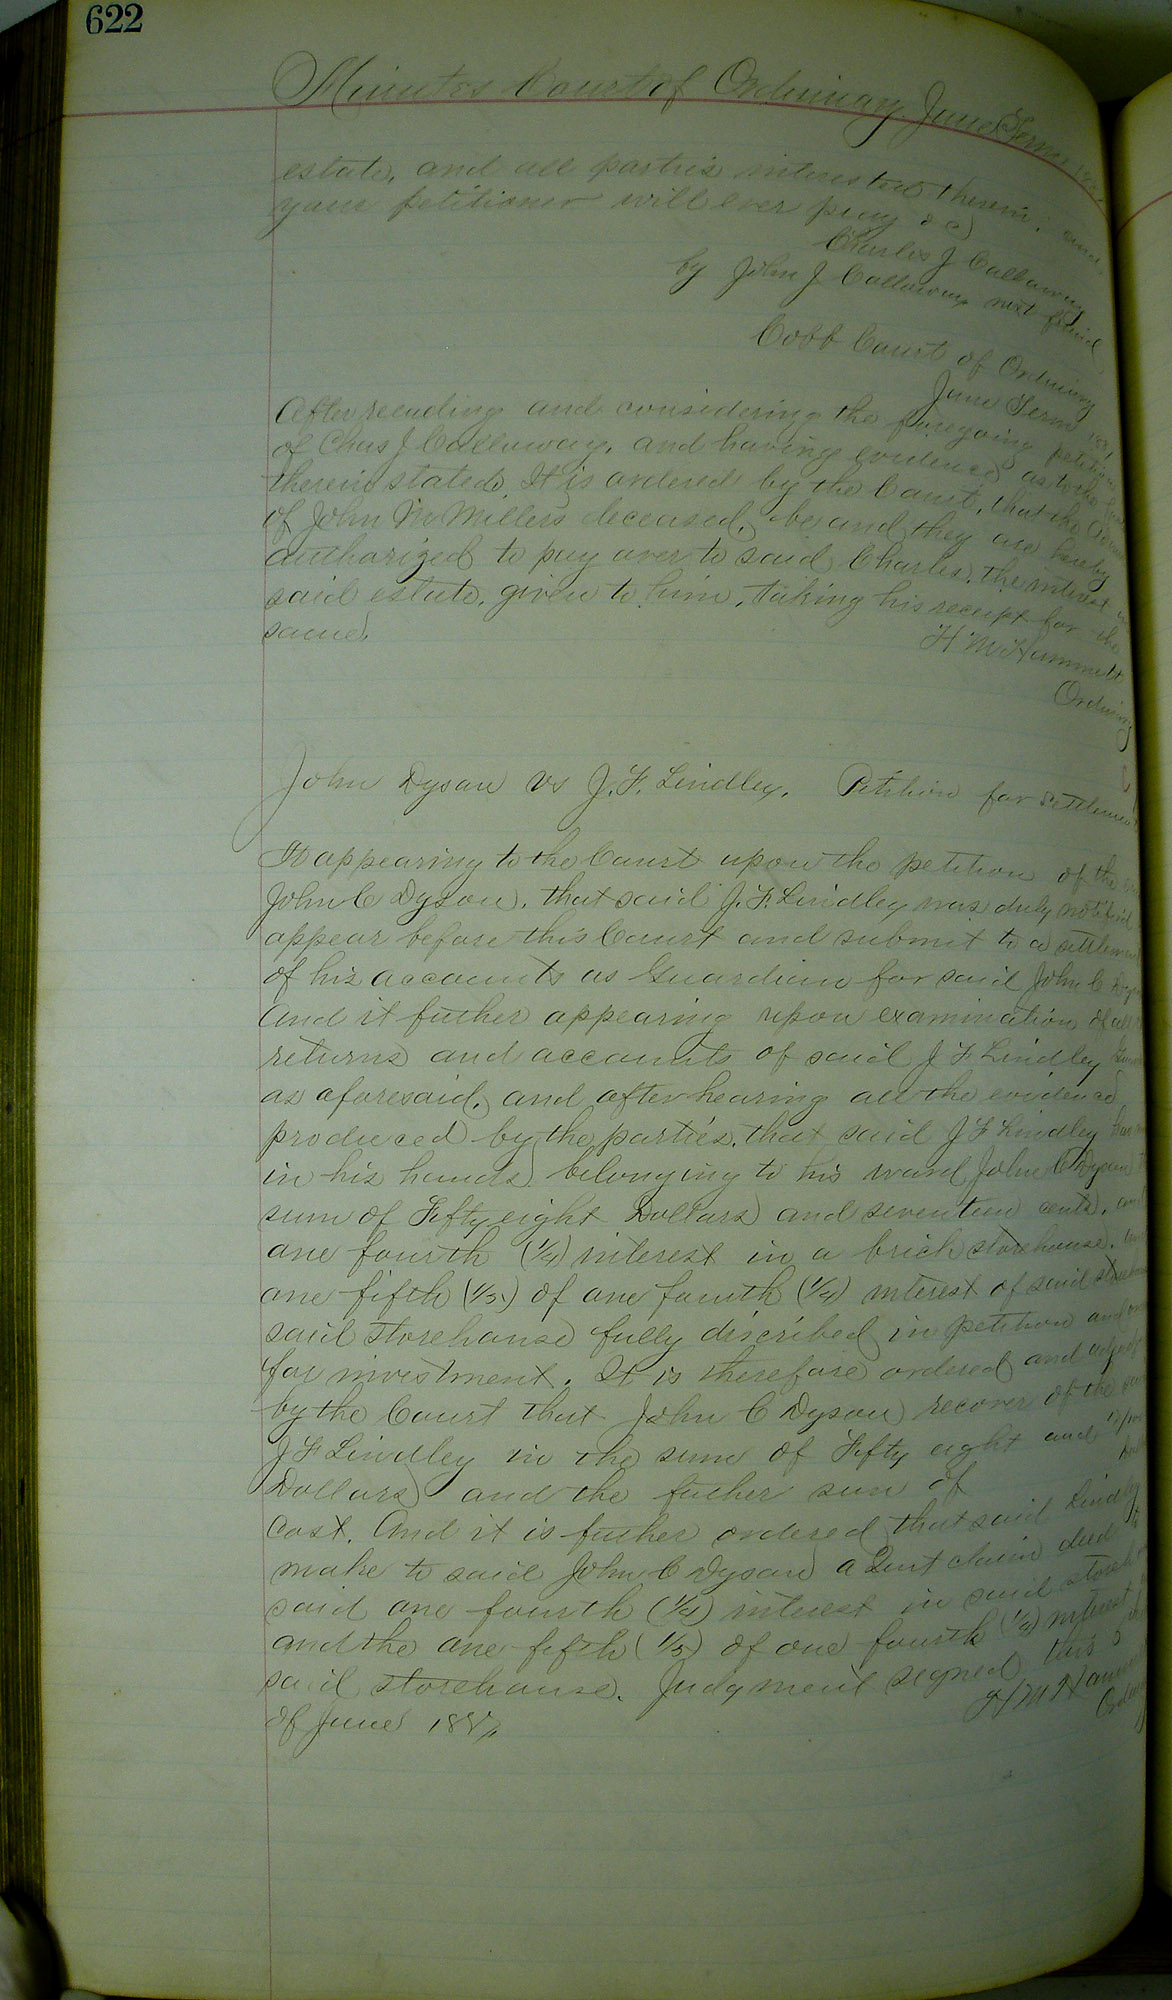 622
Minutes Court of Ordinary June Term
estate, and all parties interested therein, and
your petitioner will ever pray &c
Charles J Callaway
by John J Callaway next friend
Cobb Court of Ordinary
June Term
After reading and considering the foregoing petition
of Chas J Callaway, and having evidence as to the
therein stated, It is ordered by the Court, that the
of John M Millers deceased, be and they are hereby
authorized to pay over to said Charles, the interest in
said estate, given to him, taking his receipt for the
same.
H M Hammett
Ordinary
John Dyson vs J. F. Lindley. Petition for settlement
It appearing to the Court upon the petition of the
John C Dyson, that said J. F. Lindley was duly notified
appear before this Court and submit to a settlement
of his accounts as Guardian for said John C Dyson
And it futher appearing upon examination of
returns and accounts of said J F Lindley
as aforesaid, and after hearing all the evidence
produced by the parties, that said J F Lindley has
in his hands belonging to his ward John C Dyson
sum of Fifty eight Dollars and seventeen cents, and
one fourth (1/4) interest in a brick storehouse,
one fifth (1/5) of one fourth (1/4) interest of said storehouse
said storehouse fully discribed in petition and
for investment. It is therefore ordered and
by the Court that John C Dyson recover of the said
J F Lindley in the sum of Fifty eight and
Dollars and the futher sum of
cost. And it is futher ordered that said Lindley
make to said John C Dyson a Quit claim deed
said one fourth (1/4) interest in said
and the one fifth (1/5) of one fourth (1/4) interest
said storehouse. Judgment signed this
of June
H M Hammett
Ordinary